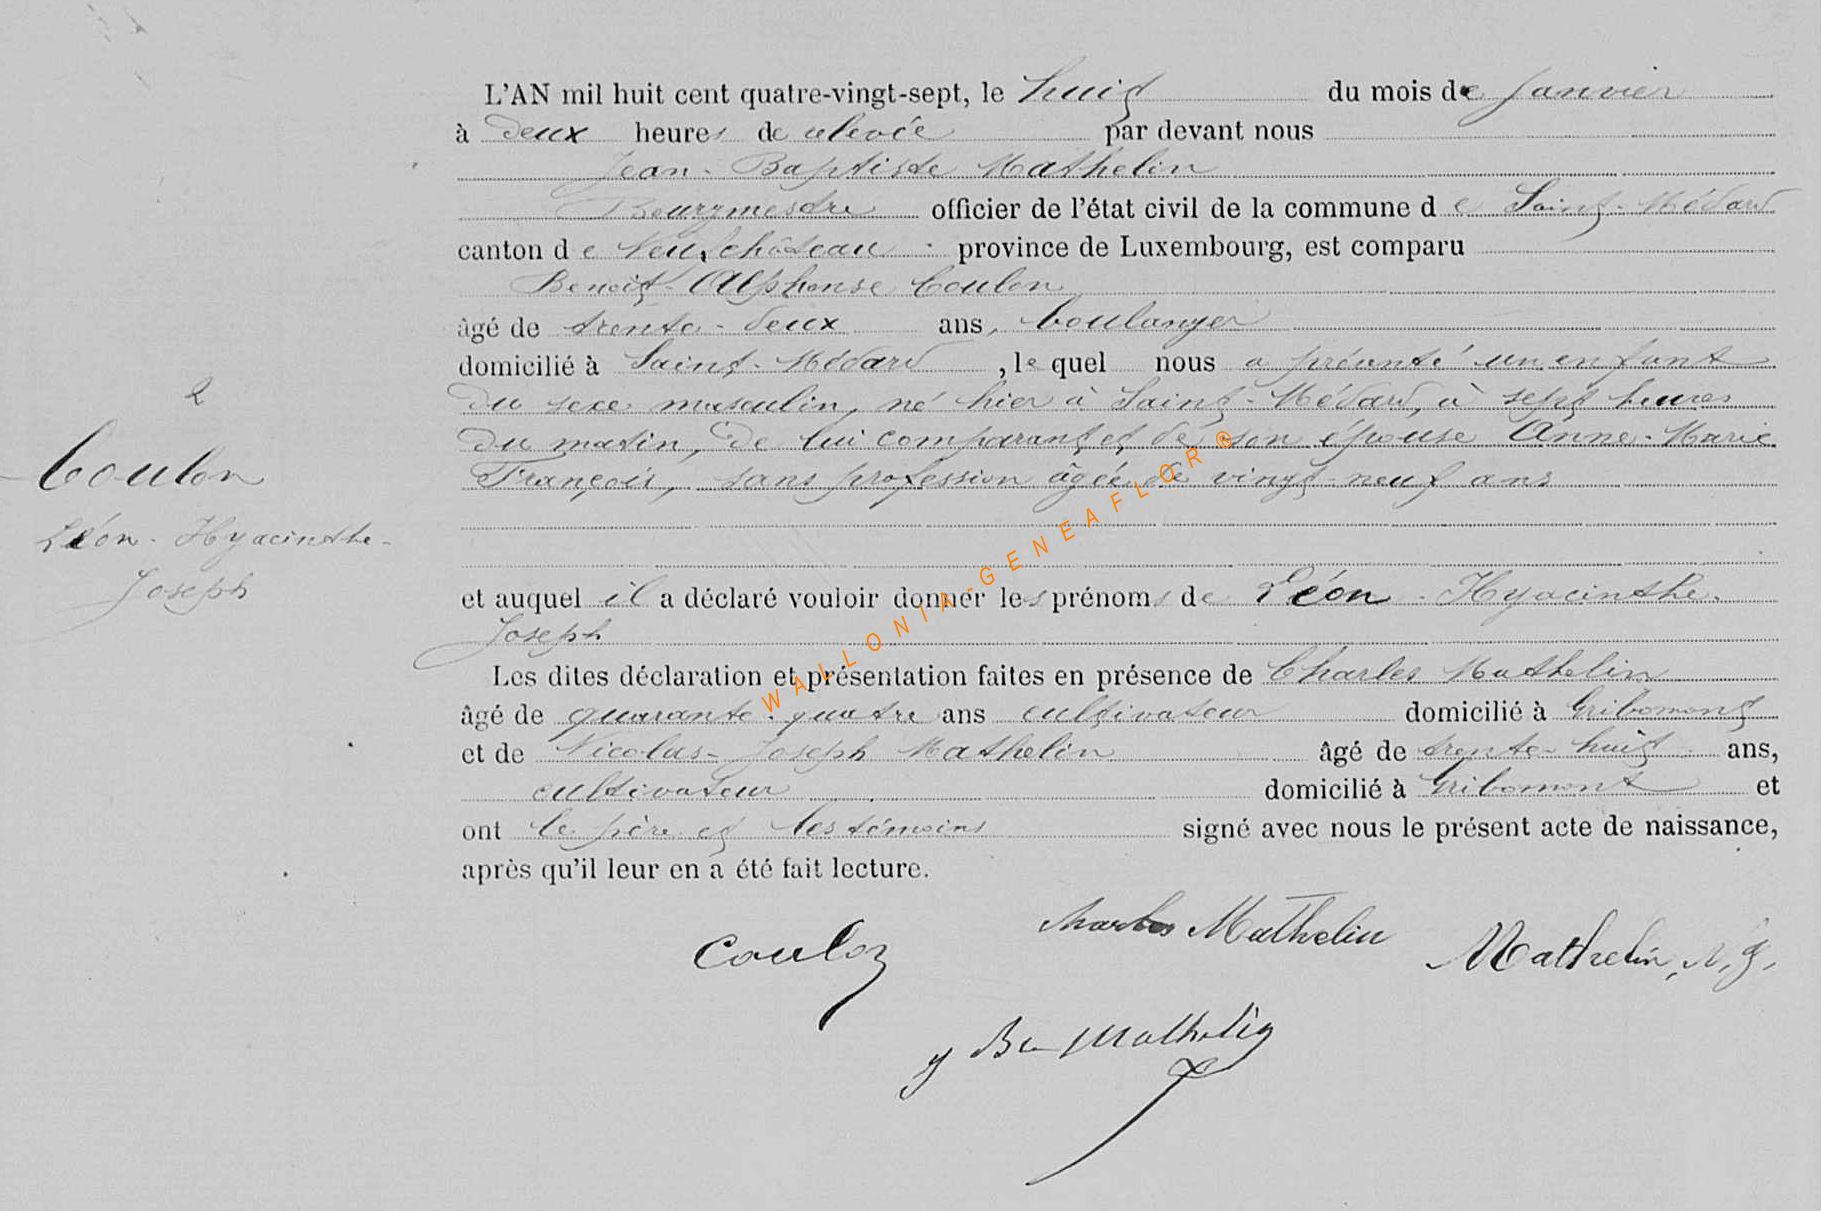 L'AN mil huit cent quatre-vingt-sept, le huit du mois de Janvier
à deux heures de relevée par devant nous
Jean-Baptiste Mathelin
Bourgmestre officier de l'état civil de la commune de Saint-Médard
canton de Neufchâteau province de Luxembourg, est comparu
Benoit-Alphonse Coulon
âgé de trente-deux ans, boulanger
domicilié à Saint-Médard, lequel nous a présenté un enfant
du sexe masculin, né hier à Saint-Médard, à sept heures
du matin, de lui comparant et de son épouse Anne-Marie
François, sans profession âgée de vingt-neuf ans
2
Coulon
Léon-Hyacinthe-
Joseph
et auquel il a déclaré vouloir donner les prénoms de Léon-Hyacinthe-
Joseph
Les dites déclaration et présentation faites en présence de Charles Mathelin
âgé de quarante-quatre ans cultivateur domicilié à Gribomont
et de Nicolas-Joseph Mathelin âgé de trente-huit ans,
cultivateur domicilié à Gribomont et
ont le père et les témoins signé avec nous le présent acte de naissance,
après qu'il leur en a été fait lecture.
Coulon
Charles Mathelin
Mathelin, N. J.
J Bte Mathelin
WALLONIA-GENEAFLOR ®